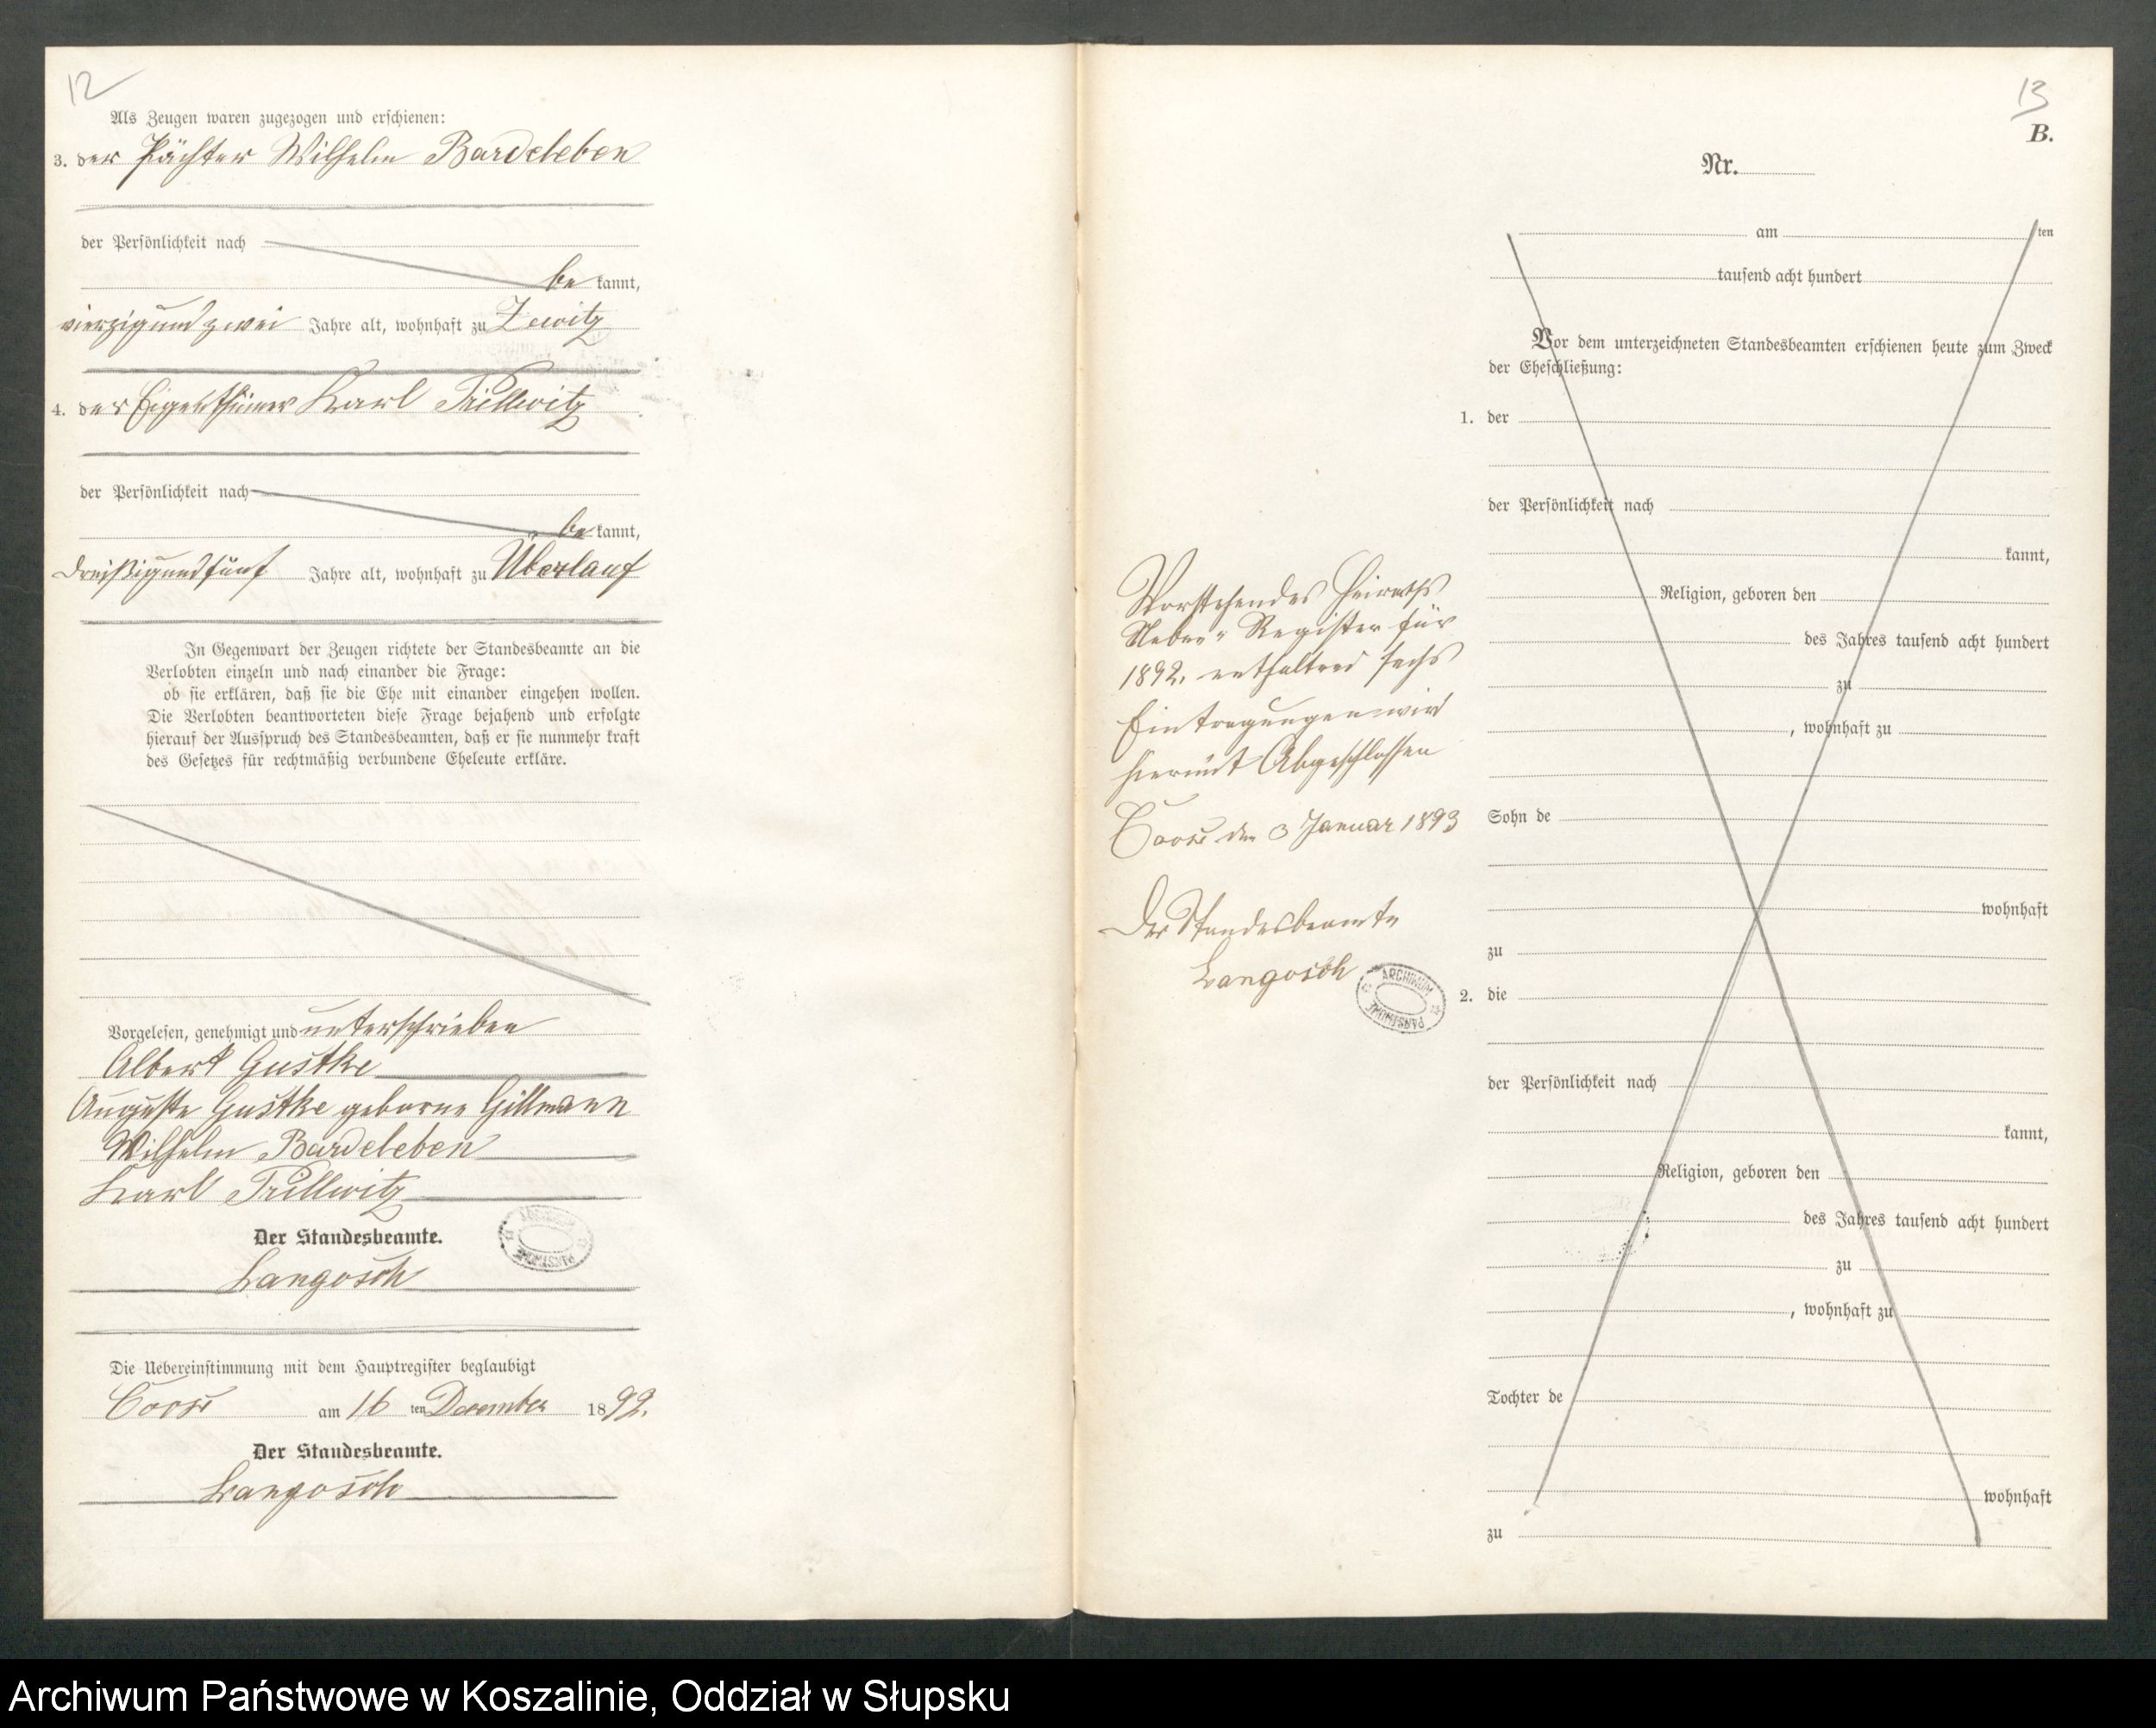 12
Als Zeugen waren zugezogen und erschienen:
3. der Pächter Wilhelm Bardeleben
der Persönlichkeit nach
be kannt,
vierzigundzwei Jahre alt, wohnhaft zu Zewitz
4. der Eigenthümer Karl Trillwitz
der Persönlichkeit nach
be kannt,
dreißigundfünf Jahre alt, wohnhaft zu Überlauf
In Gegenwart der Zeugen richtete der Standesbeamte an die
Verlobten einzeln und nach einander die Frage:
ob sie erklären, daß sie die Ehe mit einander eingehen wollen.
Die Verlobten beantworteten diese Frage bejahend und erfolgte
hierauf der Ausspruch des Standesbeamten, daß er sie nunmehr kraft
des Gesetzes für rechtmäßig verbundene Eheleute erkläre.
Vorgelesen, genehmigt und unterschrieben
Albert Gustke
Auguste Gustke geborne Gillmann
Wilhelm Bardeleben
Karl Trillwitz
Der Standesbeamte.
Langosch
Die Uebereinstimmung mit dem Hauptregister beglaubigt
Coose am 16 ten December 1892.
Der Standesbeamte.
Langosch
Vorstehendes Heiraths
Neben-Register für
1892. enthaltend sechs
Eintragungen wird
hiermit Abgeschlossen
Coose den 3 Januar 1893
Der Standesbeamte
Langosch
ARCHIWUM PAŃSTWOWE
13
B.
Nr.
am ten
tausend acht hundert
Vor dem unterzeichneten Standesbeamten erschienen heute zum Zweck
der Eheschließung:
1. der
der Persönlichkeit nach
kannt,
Religion, geboren den
des Jahres tausend acht hundert
zu
, wohnhaft zu
Sohn de
wohnhaft
zu
2. die
der Persönlichkeit nach
kannt,
Religion, geboren den
des Jahres tausend acht hundert
zu
, wohnhaft zu
Tochter de
wohnhaft
zu
Archiwum Państwowe w Koszalinie, Oddział w Słupsku